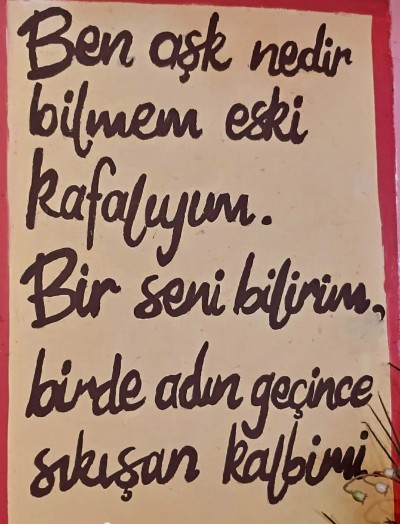 Ben aşk nedir
bilmem eski
kafalıyım.
Bir seni bilirim,
birde adın geçince
sıkışan kalbimi